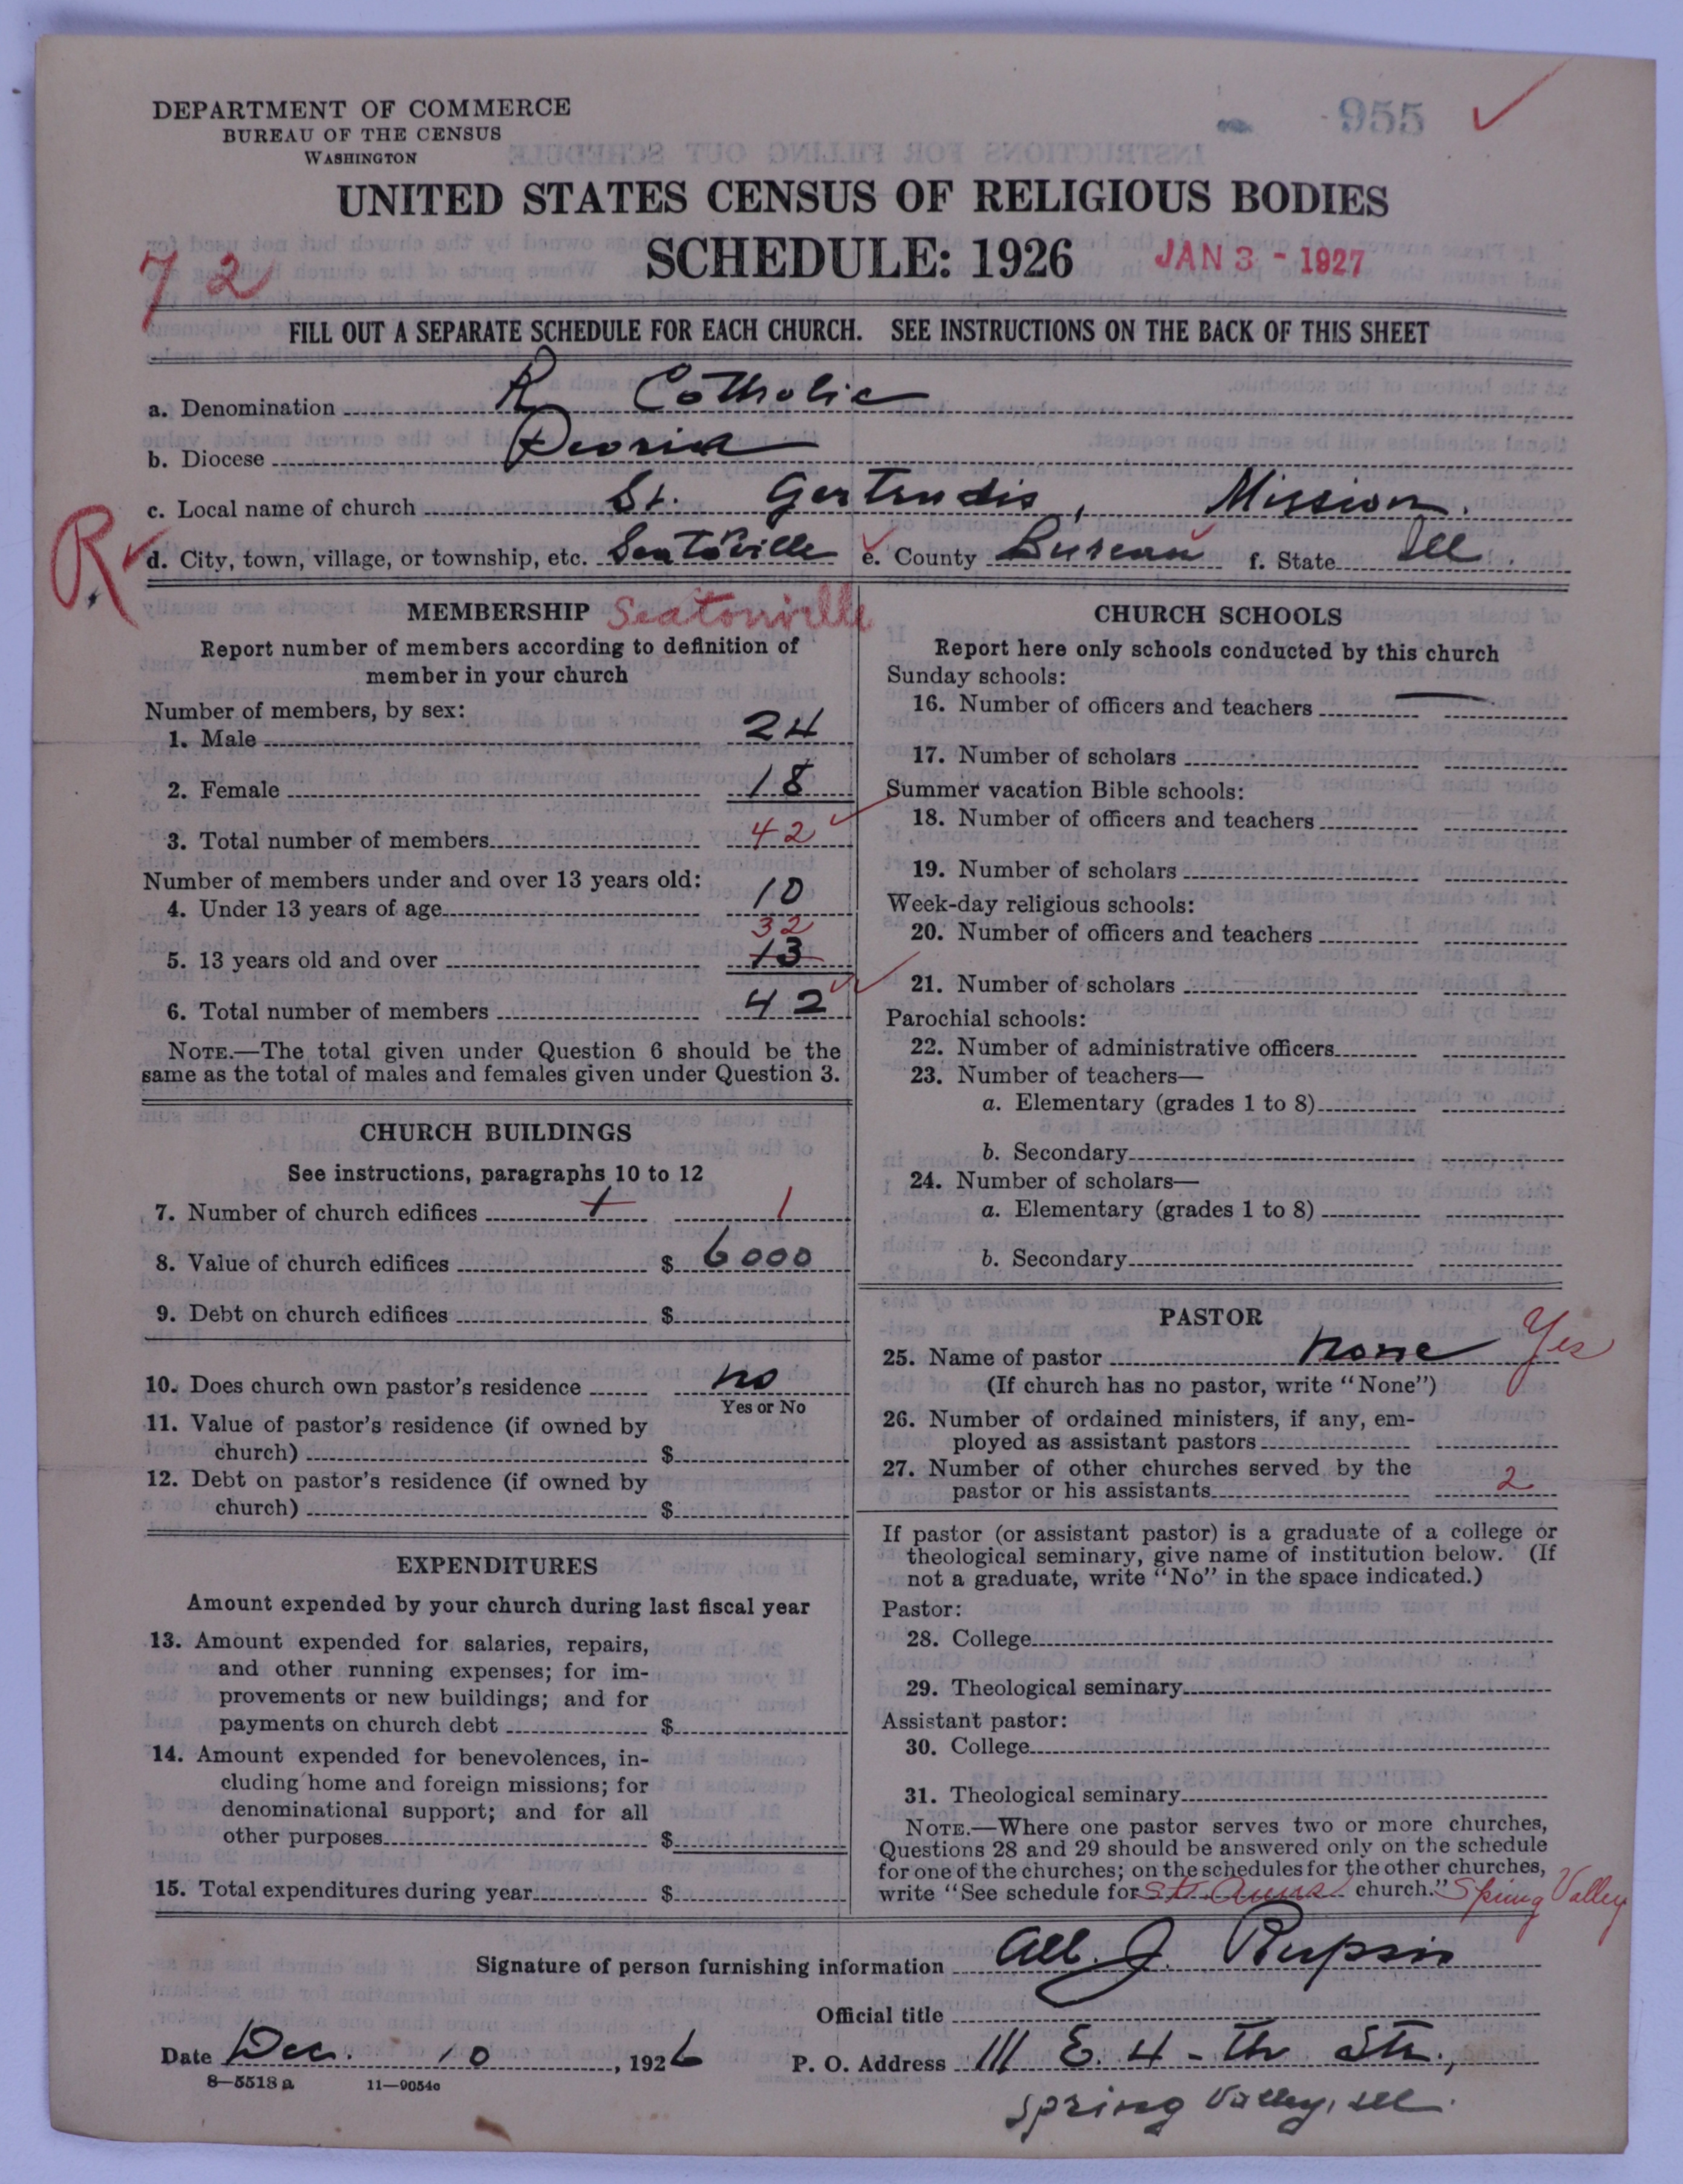 DEPARTMENT OF COMMERCE
BUREAU OF THE CENSUS
WASHINGTON
955
UNITED STATES CENSUS OF RELIGIOUS BODIES
SCHEDULE: 1926
JAN 3 - 1927
72
FILL OUT A SEPARATE SCHEDULE FOR EACH CHURCH. SEE INSTRUCTIONS ON THE BACK OF THIS SHEET
a. Denomination R Catholic
b. Diocese Peoria
c. Local name of church St. Gertrudis, Mission.
R
d. City, town, village, or township, etc. Seatoville e. County Bureau f. State Ill.
MEMBERSHIP Seatonville
Report number of members according to definition of
member in your church
Number of members, by sex:
1. Male 24
2. Female 18
3. Total number of members 42
Number of members under and over 13 years old:
4. Under 13 years of age 10
32
5. 13 years old and over 13
6. Total number of members 42
NOTE.—The total given under Question 6 should be the
same as the total of males and females given under Question 3.
CHURCH BUILDINGS
See instructions, paragraphs 10 to 12
7. Number of church edifices 1 1
8. Value of church edifices $ 6000
9. Debt on church edifices $
10. Does church own pastor's residence no
Yes or No
11. Value of pastor's residence (if owned by
church) $
12. Debt on pastor's residence (if owned by
church) $
EXPENDITURES
Amount expended by your church during last fiscal year
13. Amount expended for salaries, repairs,
and other running expenses; for im-
provements or new buildings; and for
payments on church debt $
14. Amount expended for benevolences, in-
cluding home and foreign missions; for
denominational support; and for all
other purposes $
15. Total expenditures during year $
CHURCH SCHOOLS
Report here only schools conducted by this church
Sunday schools:
16. Number of officers and teachers
17. Number of scholars
Summer vacation Bible schools:
18. Number of officers and teachers
19. Number of scholars
Week-day religious schools:
20. Number of officers and teachers
21. Number of scholars
Parochial schools:
22. Number of administrative officers
23. Number of teachers—
a. Elementary (grades 1 to 8)
b. Secondary
24. Number of scholars—
a. Elementary (grades 1 to 8)
b. Secondary
PASTOR
25. Name of pastor none Yes
(If church has no pastor, write "None")
26. Number of ordained ministers, if any, em-
ployed as assistant pastors
27. Number of other churches served by the
pastor or his assistants 2
If pastor (or assistant pastor) is a graduate of a college or
theological seminary, give name of institution below. (If
not a graduate, write "No" in the space indicated.)
Pastor:
28. College
29. Theological seminary
Assistant pastor:
30. College
31. Theological seminary
NOTE.—Where one pastor serves two or more churches,
Questions 28 and 29 should be answered only on the schedule
for one of the churches; on the schedules for the other churches,
write "See schedule for St. Anns church." Spring Valley
Signature of person furnishing information Alb. J. Rupsis
Official title
Date Dec. 10, 1926 P. O. Address 111 E. 4-th Str.,
8—5518a 11—9054c
Spring Valley, Ill.